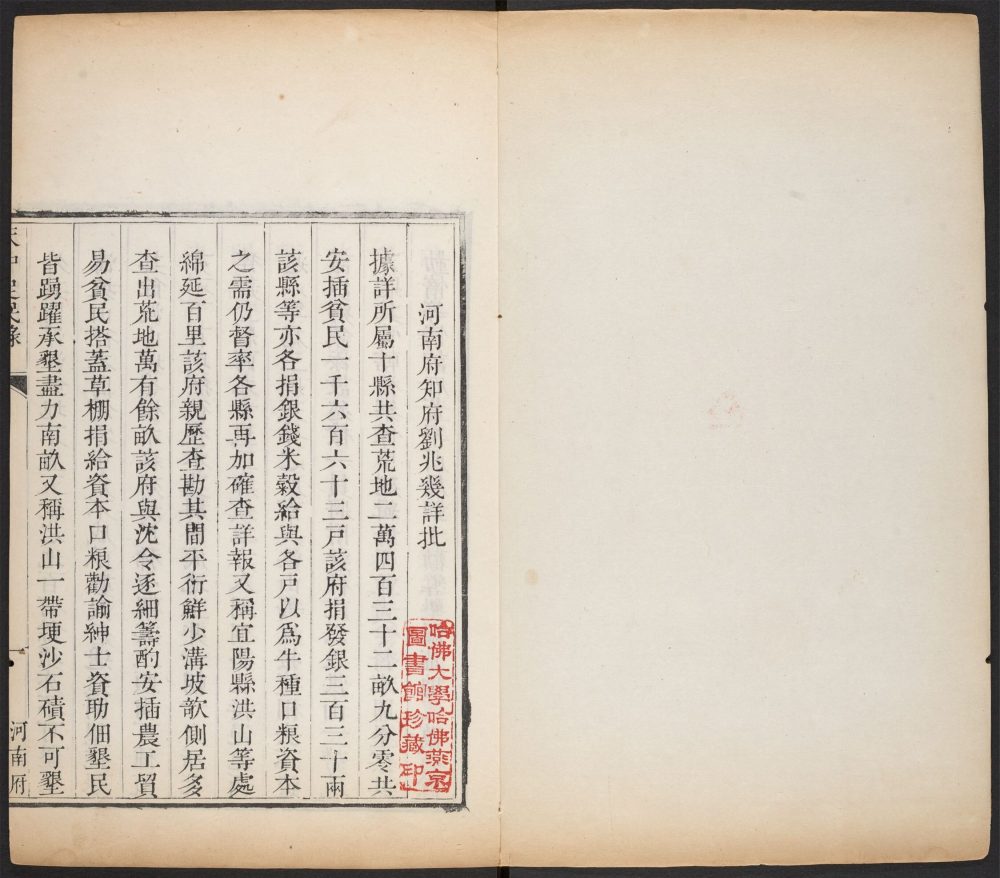 河南府知府劉兆幾詳批
據詳所屬十縣共查荒地二萬四百三十二畝九分零共
安插貧民一千六百六十三戸該府捐發銀三百三十兩
該縣等亦各捐銀錢米穀給與各戸以爲牛種口粮資本
之需仍督率各縣再加確查詳報又稱宜陽縣洪山等處
綿延百里該府親歷查勘其間平衍鮮少溝坡欹側居多
查出荒地萬有餘畝該府與沈令逐細籌酌安插農工貿
易貧民搭蓋草棚捐給資本口粮勸諭紳士資助佃墾民
皆踴躍承墾盡力南畝又稱洪山一帶埂沙石磧不可墾
一
河南府
哈佛大學哈佛燕京
圖書館珍藏印